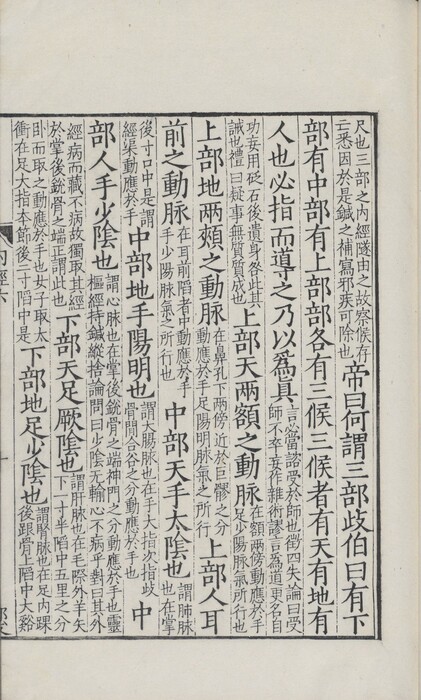 尺也三部之内經隧由之故察候存
亡悉因於是鍼之補寫邪疾可除也
帝曰何謂三部歧伯曰有下
部有中部有上部部各有三候三候者有天有地有
人也必指而導之乃以爲真
言必當諮受於師也徵四失論曰受
師不卒妄作雜術謬言爲道更名自
功妄用砭石後遺身咎此其
誡也禮曰疑事無質質成也
上部天兩額之動脉
在額兩傍動應於手
足少陽脉氣所行也
上部地兩頰之動脉
在鼻孔下兩傍近於巨髎之分
動應於手足陽明脉氣之所行
上部人耳
前之動脉
在耳前陷者中動應於
手手少陽脉氣之所行也
中部天手太陰也
謂肺脉
也在掌
後寸口中是謂
經渠動應於手
中部地手陽明也
謂大腸脉也在手大指次指歧
骨間合谷之分動應於手也
中
部人手少陰也
謂心脉也在掌後銳骨之端神門之分動應於手也靈
樞經持鍼縱捨論問曰少陰無輸心不病乎對曰其外
經病而藏不病故獨取其經
於掌後銳骨之端正謂此也
下部天足厥陰也
謂肝脉也在毛際外羊矢
下一寸半陷中五里之分
卧而取之動應於手也女子取太
衝在足大指本節後二寸陷中是
下部地足少陰也
謂腎脉也在足内踝
後跟骨上陷中大谿
内經六